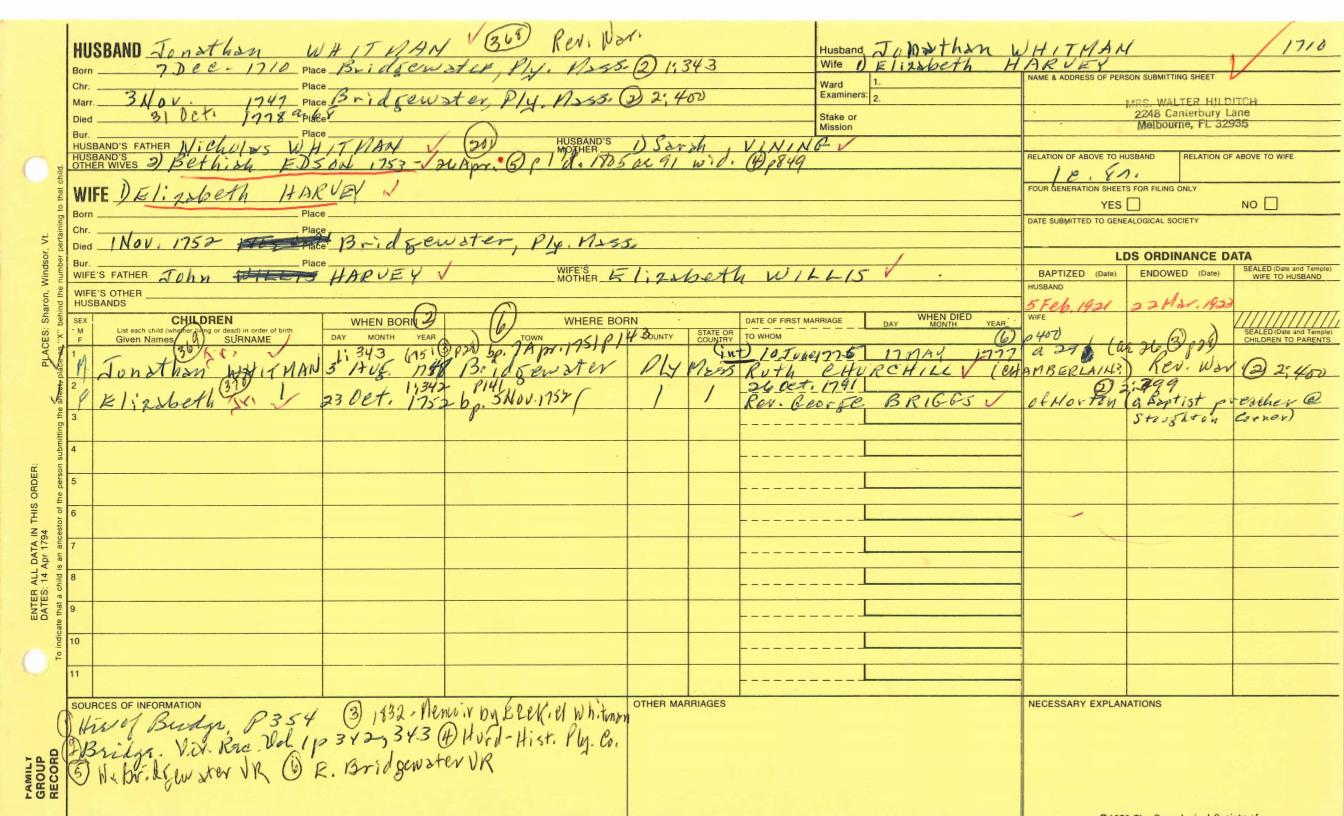 HUSBAND Jonathan WHITMAN (368) Rev. War.
Born 7 Dec. 1710 Place Bridgewater, Ply. Mass. (2) 1:343
Chr. Place
Marr. 3 Nov. 1747 Place Bridgewater, Ply. Mass. (2) 2:400
Died 31 Oct. 1778 Place
Bur. Place
HUSBAND'S FATHER Nicholas WHITMAN (201) HUSBAND'S MOTHER 1) Sarah VINING
HUSBAND'S OTHER WIVES 2) Bethiah EDSON 1753 - 26 Apr. (5) p 1 d. 1805 ae 91 wid. (4) p849
WIFE 1) Elizabeth HARVEY
Born Place
Chr. Place
Died 1 Nov. 1752 Place Bridgewater, Ply. Mass.
Bur. Place
WIFE'S FATHER John HARVEY WIFE'S MOTHER Elizabeth WILLIS
WIFE'S OTHER HUSBANDS
Husband Jonathan WHITMAN 1710
Wife 1) Elizabeth HARVEY
Ward Examiners: 1.
2.
Stake or Mission
NAME & ADDRESS OF PERSON SUBMITTING SHEET
MRS. WALTER HILDITCH
2248 Canterbury Lane
Melbourne, FL 32935
RELATION OF ABOVE TO HUSBAND RELATION OF ABOVE TO WIFE
FOUR GENERATION SHEETS FOR FILING ONLY
YES NO
DATE SUBMITTED TO GENEALOGICAL SOCIETY
LDS ORDINANCE DATA
BAPTIZED (Date) ENDOWED (Date) SEALED (Date and Temple) WIFE TO HUSBAND
HUSBAND
5 Feb. 1921 22 Mar. 1923
WIFE
SEALED (Date and Temple) CHILDREN TO PARENTS
SEX M F CHILDREN WHEN BORN (2) (6) WHERE BORN DATE OF FIRST MARRIAGE WHEN DIED
List each child (whether living or dead) in order of birth
Given Names SURNAME DAY MONTH YEAR TOWN COUNTY STATE OR COUNTRY TO WHOM DAY MONTH YEAR
(369) Jr. 1:343 (1751 (3) p28) bp. 7 Apr. 1751 p143 (int) 10 June 1775 17 MAY 1777 (6) p400
1 M Jonathan WHITMAN 3 Aug. Bridgewater Ply Mass Ruth CHURCHILL (CHAMBERLAIN?) Rev. War (2) 2:400
(370) 1:342 p141 26 Oct. 1791 (2) 2:399
2 F Elizabeth 23 Oct. 1752 bp. 5 Nov. 1752 Rev. George BRIGGS of Norton (a Baptist preacher @ Stoughton Corner)
3
4
5
6
7
8
9
10
11
SOURCES OF INFORMATION
(1) Hist of Bridge, P354 (3) 1832 - Memoir by Ezekiel Whitman
(2) Bridge. Vit. Rec. Vol. 1 p 342, 343 (4) Hurd - Hist. Ply. Co.
(5) W. Bridgewater VR (6) E. Bridgewater VR
OTHER MARRIAGES
NECESSARY EXPLANATIONS
FAMILY GROUP RECORD
ENTER ALL DATA IN THIS ORDER:
DATES: 14 Apr 1794
PLACES: Sharon, Windsor, Vt.
To indicate that a child is an ancestor of the person submitting the sheet, place an "X" behind the number pertaining to that child.